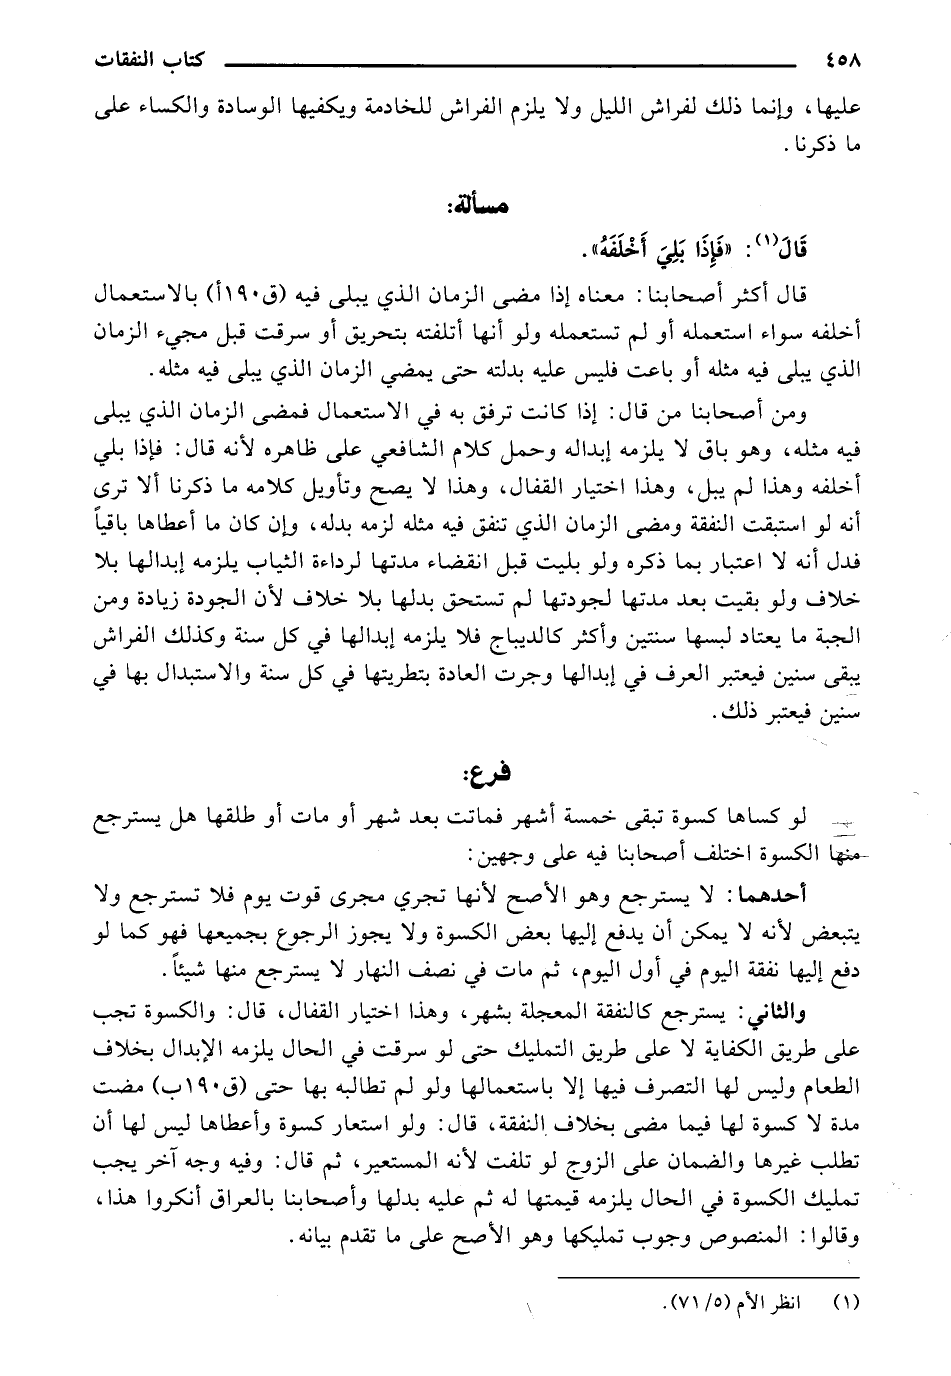 ٤٥٨ كتاب النفقات
عليها، وإنما ذلك لفراش الليل ولا يلزم الفراش للخادمة ويكفيها الوسادة والكساء على
ما ذكرنا.
مسألة:
قَالَ(١): «فَإِذَا بَلِيَ أَخْلَفَهُ».
قال أكثر أصحابنا: معناه إذا مضى الزمان الذي يبلى فيه (ق١٩٠أ) بالاستعمال
أخلفه سواء استعمله أو لم تستعمله ولو أنها أتلفته بتحريق أو سرقت قبل مجيء الزمان
الذي يبلى فيه مثله أو باعت فليس عليه بدلته حتى يمضي الزمان الذي يبلى فيه مثله.
ومن أصحابنا من قال: إذا كانت ترفق به في الاستعمال فمضى الزمان الذي يبلى
فيه مثله، وهو باق لا يلزمه إبداله وحمل كلام الشافعي على ظاهره لأنه قال: فإذا بلي
أخلفه وهذا لم يبل، وهذا اختيار القفال، وهذا لا يصح وتأويل كلامه ما ذكرنا ألا ترى
أنه لو استبقت النفقة ومضى الزمان الذي تنفق فيه مثله لزمه بدله، وإن كان ما أعطاها باقياً
فدل أنه لا اعتبار بما ذكره ولو بليت قبل انقضاء مدتها لرداءة الثياب يلزمه إبدالها بلا
خلاف ولو بقيت بعد مدتها لجودتها لم تستحق بدلها بلا خلاف لأن الجودة زيادة ومن
الجبة ما يعتاد لبسها سنتين وأكثر كالديباج فلا يلزمه إبدالها في كل سنة وكذلك الفراش
يبقى سنين فيعتبر العرف في إبدالها وجرت العادة بتطريتها في كل سنة والاستبدال بها في
سنين فيعتبر ذلك.
فرع:
لو كساها كسوة تبقى خمسة أشهر فماتت بعد شهر أو مات أو طلقها هل يسترجع
منها الكسوة اختلف أصحابنا فيه على وجهين:
أحدهما: لا يسترجع وهو الأصح لأنها تجري مجرى قوت يوم فلا تسترجع ولا
يتبعض لأنه لا يمكن أن يدفع إليها بعض الكسوة ولا يجوز الرجوع بجميعها فهو كما لو
دفع إليها نفقة اليوم في أول اليوم، ثم مات في نصف النهار لا يسترجع منها شيئاً.
والثاني: يسترجع كالنفقة المعجلة بشهر، وهذا اختيار القفال، قال: والكسوة تجب
على طريق الكفاية لا على طريق التمليك حتى لو سرقت في الحال يلزمه الإبدال بخلاف
الطعام وليس لها التصرف فيها إلا باستعمالها ولو لم تطالبه بها حتى (ق١٩٠ب) مضت
مدة لا كسوة لها فيما مضى بخلاف النفقة، قال: ولو استعار كسوة وأعطاها ليس لها أن
تطلب غيرها والضمان على الزوج لو تلفت لأنه المستعير، ثم قال: وفيه وجه آخر يجب
تمليك الكسوة في الحال يلزمه قيمتها له ثم عليه بدلها وأصحابنا بالعراق أنكروا هذا،
وقالوا: المنصوص وجوب تمليكها وهو الأصح على ما تقدم بيانه.
(١) انظر الأم (٥/ ٧١).